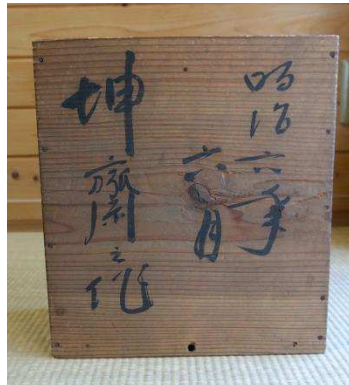 明治六年
六月
坤齋之作